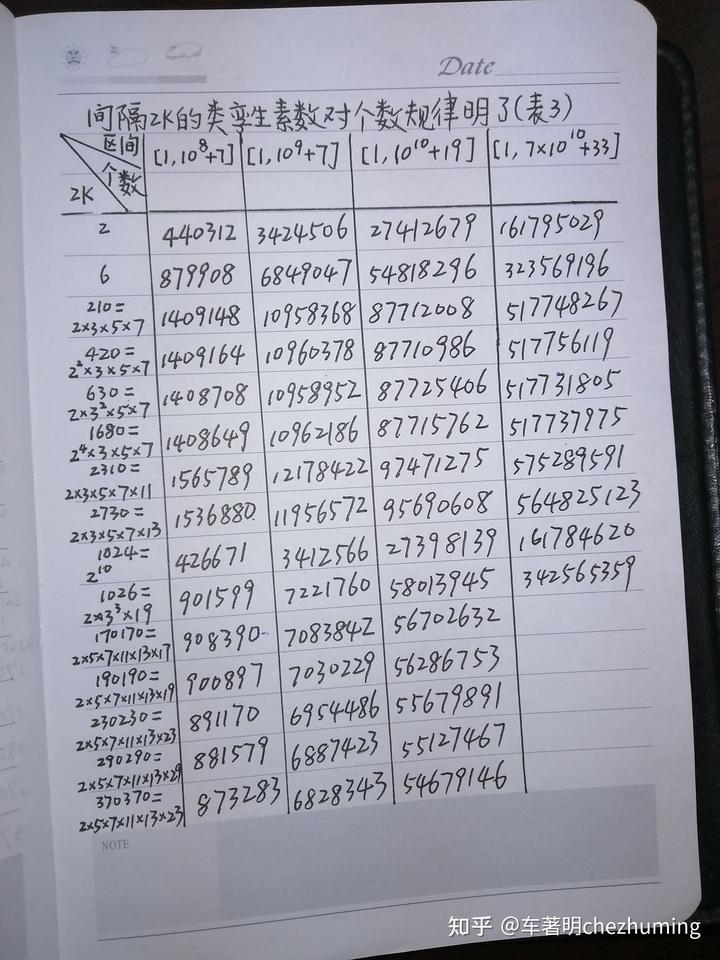 Date
间隔2K的类孪生素数对个数规律明了(表3)
区间 个数 2K [1,10⁸+7] [1,10⁹+7] [1,10¹⁰+19] [1,7×10¹⁰+33]
2 440312 3424506 27412679 161795029
6 879908 6849047 54818296 323569196
210=
2×3×5×7 1409148 10958368 87712008 517748267
420=
2²×3×5×7 1409164 10960378 87710986 517756119
630=
2×3²×5×7 1408708 10958952 87725406 517731805
1680=
2⁴×3×5×7 1408649 10962186 87715762 517737975
2310=
2×3×5×7×11 1565789 12178422 97471275 575289591
2730=
2×3×5×7×13 1536880 11956572 95690608 564825123
1024=
2¹⁰ 426671 3412566 27398139 161784620
1026=
2×3³×19 901599 7221760 58013945 342565359
170170=
2×5×7×11×13×17 908390 7083842 56702632
190190=
2×5×7×11×13×19 900897 7030229 56286753
230230=
2×5×7×11×13×23 891170 6954486 55679891
290290=
2×5×7×11×13×29 881579 6887423 55127467
370370=
2×5×7×11×13×23 873283 6828343 54679146
NOTE
知乎 @车著明chezhuming